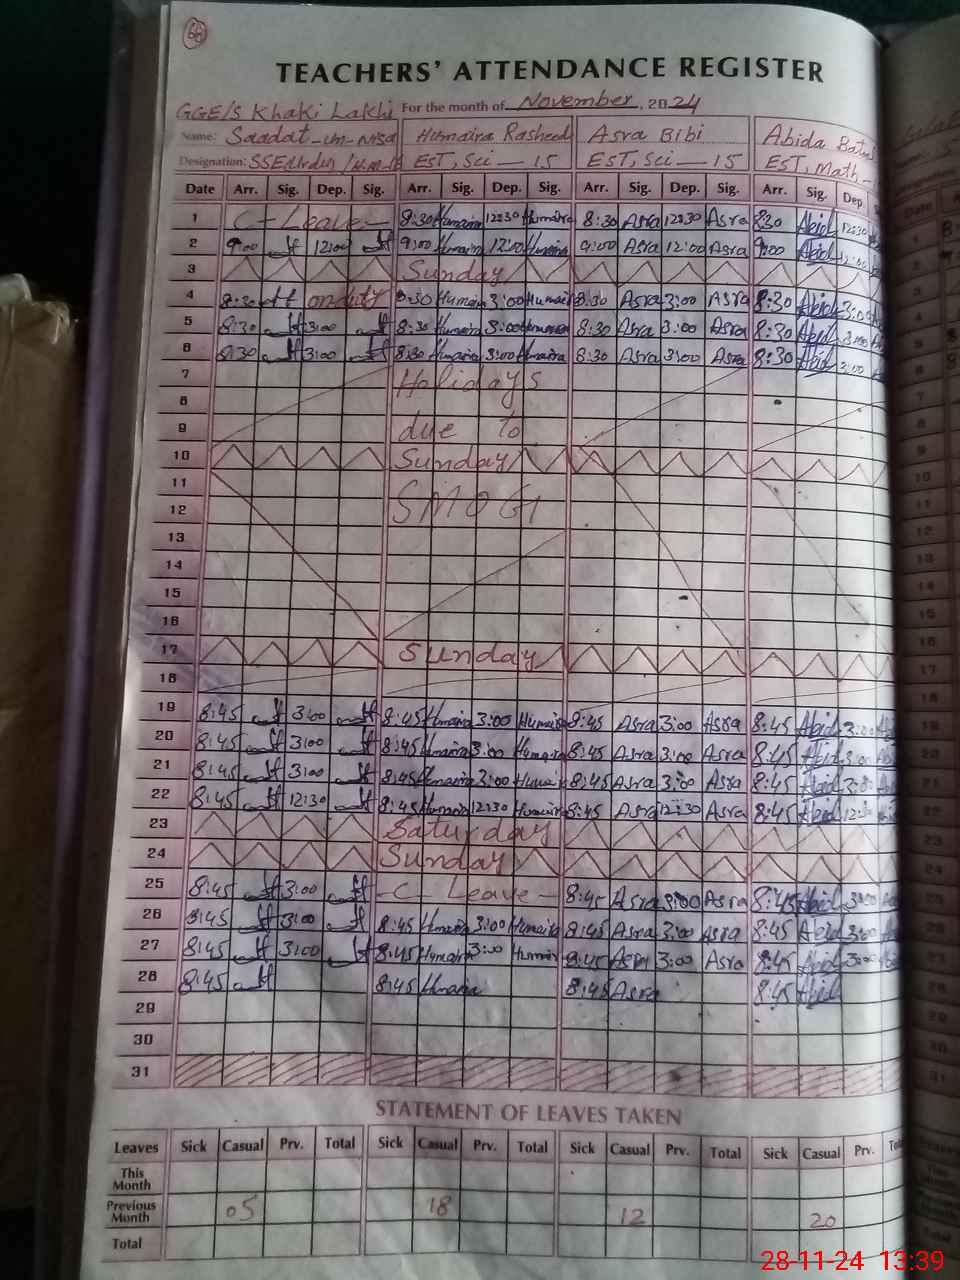 66
TEACHERS' ATTENDANCE REGISTER
GGE/S Khaki Lakhi For the month of November, 2024
Name: Saadat-um-Nisa Humaira Rasheed Asra Bibi Abida
Designation: SSE(Urdu) EST, Sci — 15 EST, Sci — 15 EST, Math —
Date Arr. Sig. Dep. Sig. Arr. Sig. Dep. Sig. Arr. Sig. Dep. Sig. Arr. Sig. Dep.
1 C-Leave- 8:30 Humaira 12:30 Humaira 8:30 Asra 12:30 Asra 8:30 Abid 12:30
2 9:00 12:00 9:00 Humaira 12:00 Humaira 9:00 Asra 12:00 Asra 9:00 Abid 12:00
3 Sunday
4 8:30 on duty 8:30 Humaira 3:00 Humaira 8:30 Asra 3:00 Asra 8:30 Abid 3:00
5 8:30 3:00 8:30 Humaira 3:00 Humaira 8:30 Asra 3:00 Asra 8:30 Abid 3:00
6 8:30 3:00 8:30 Humaira 3:00 Humaira 8:30 Asra 3:00 Asra 8:30 Abid 3:00
7 Holidays
8
9 due to
10 Sunday
11
12 SMOG
13
14
15
16
17 Sunday
18
19 8:45 3:00 8:45 Humaira 3:00 Humaira 8:45 Asra 3:00 Asra 8:45 Abid 3:00
20 8:45 3:00 8:45 Humaira 3:00 Humaira 8:45 Asra 3:00 Asra 8:45 Abid 3:00
21 8:45 3:00 8:45 Humaira 3:00 Humaira 8:45 Asra 3:00 Asra 8:45 Abid 3:00
22 8:45 12:30 8:45 Humaira 12:30 Humaira 8:45 Asra 12:30 Asra 8:45 Abid 12:30
23 Saturday
24 Sunday
25 8:45 3:00 -C- Leave- 8:45 Asra 3:00 Asra 8:45 Abid 3:00
26 8:45 3:00 8:45 Humaira 3:00 Humaira 8:45 Asra 3:00 Asra 8:45 Abid 3:00
27 8:45 3:00 8:45 Humaira 3:00 Humaira 8:45 Asra 3:00 Asra 8:45 Abid 3:00
28 8:45 8:45 Humaira 8:45 Asra 8:45 Abid
29
30
31
STATEMENT OF LEAVES TAKEN
Leaves Sick Casual Prv. Total Sick Casual Prv. Total Sick Casual Prv. Total Sick Casual Prv.
This Month
Previous Month 05 18 12 20
Total
28-11-24 13:39